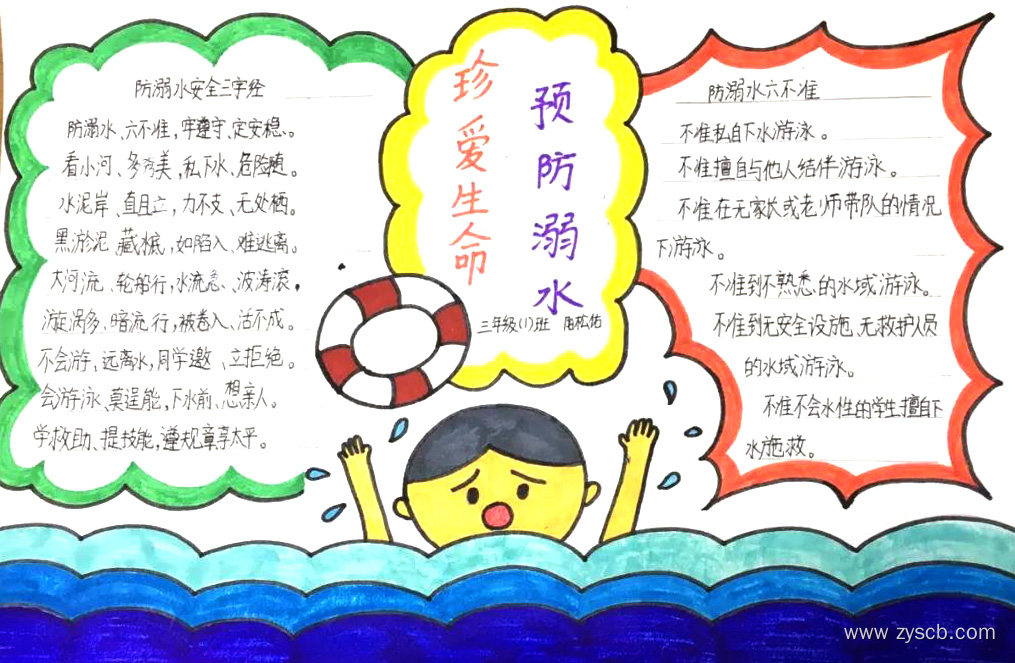 防溺水安全三字经
防溺水、六不准，牢遵守、定安稳。
看小河、多秀美，私下水、危险随。
水泥岸、直且立，力不支、无处栖。
黑淤泥、藏河底，如陷入、难逃离。
大河流、轮船行，水流急、波涛滚，
漩涡多、暗流行，被卷入、活不成。
不会游、远离水，同学邀、立拒绝。
会游泳、莫逞能，下水前、想亲人。
学救助、提技能，遵规章享太平。
珍爱生命
预防溺水
三年级(1)班
防溺水六不准
不准私自下水游泳。
不准擅自与他人结伴游泳。
不准在无家长或老师带队的情况
下游泳。
不准到不熟悉的水域游泳。
不准到无安全设施、无救护人员
的水域游泳。
不准不会水性的学生擅自下
水施救。
www.zyscb.com